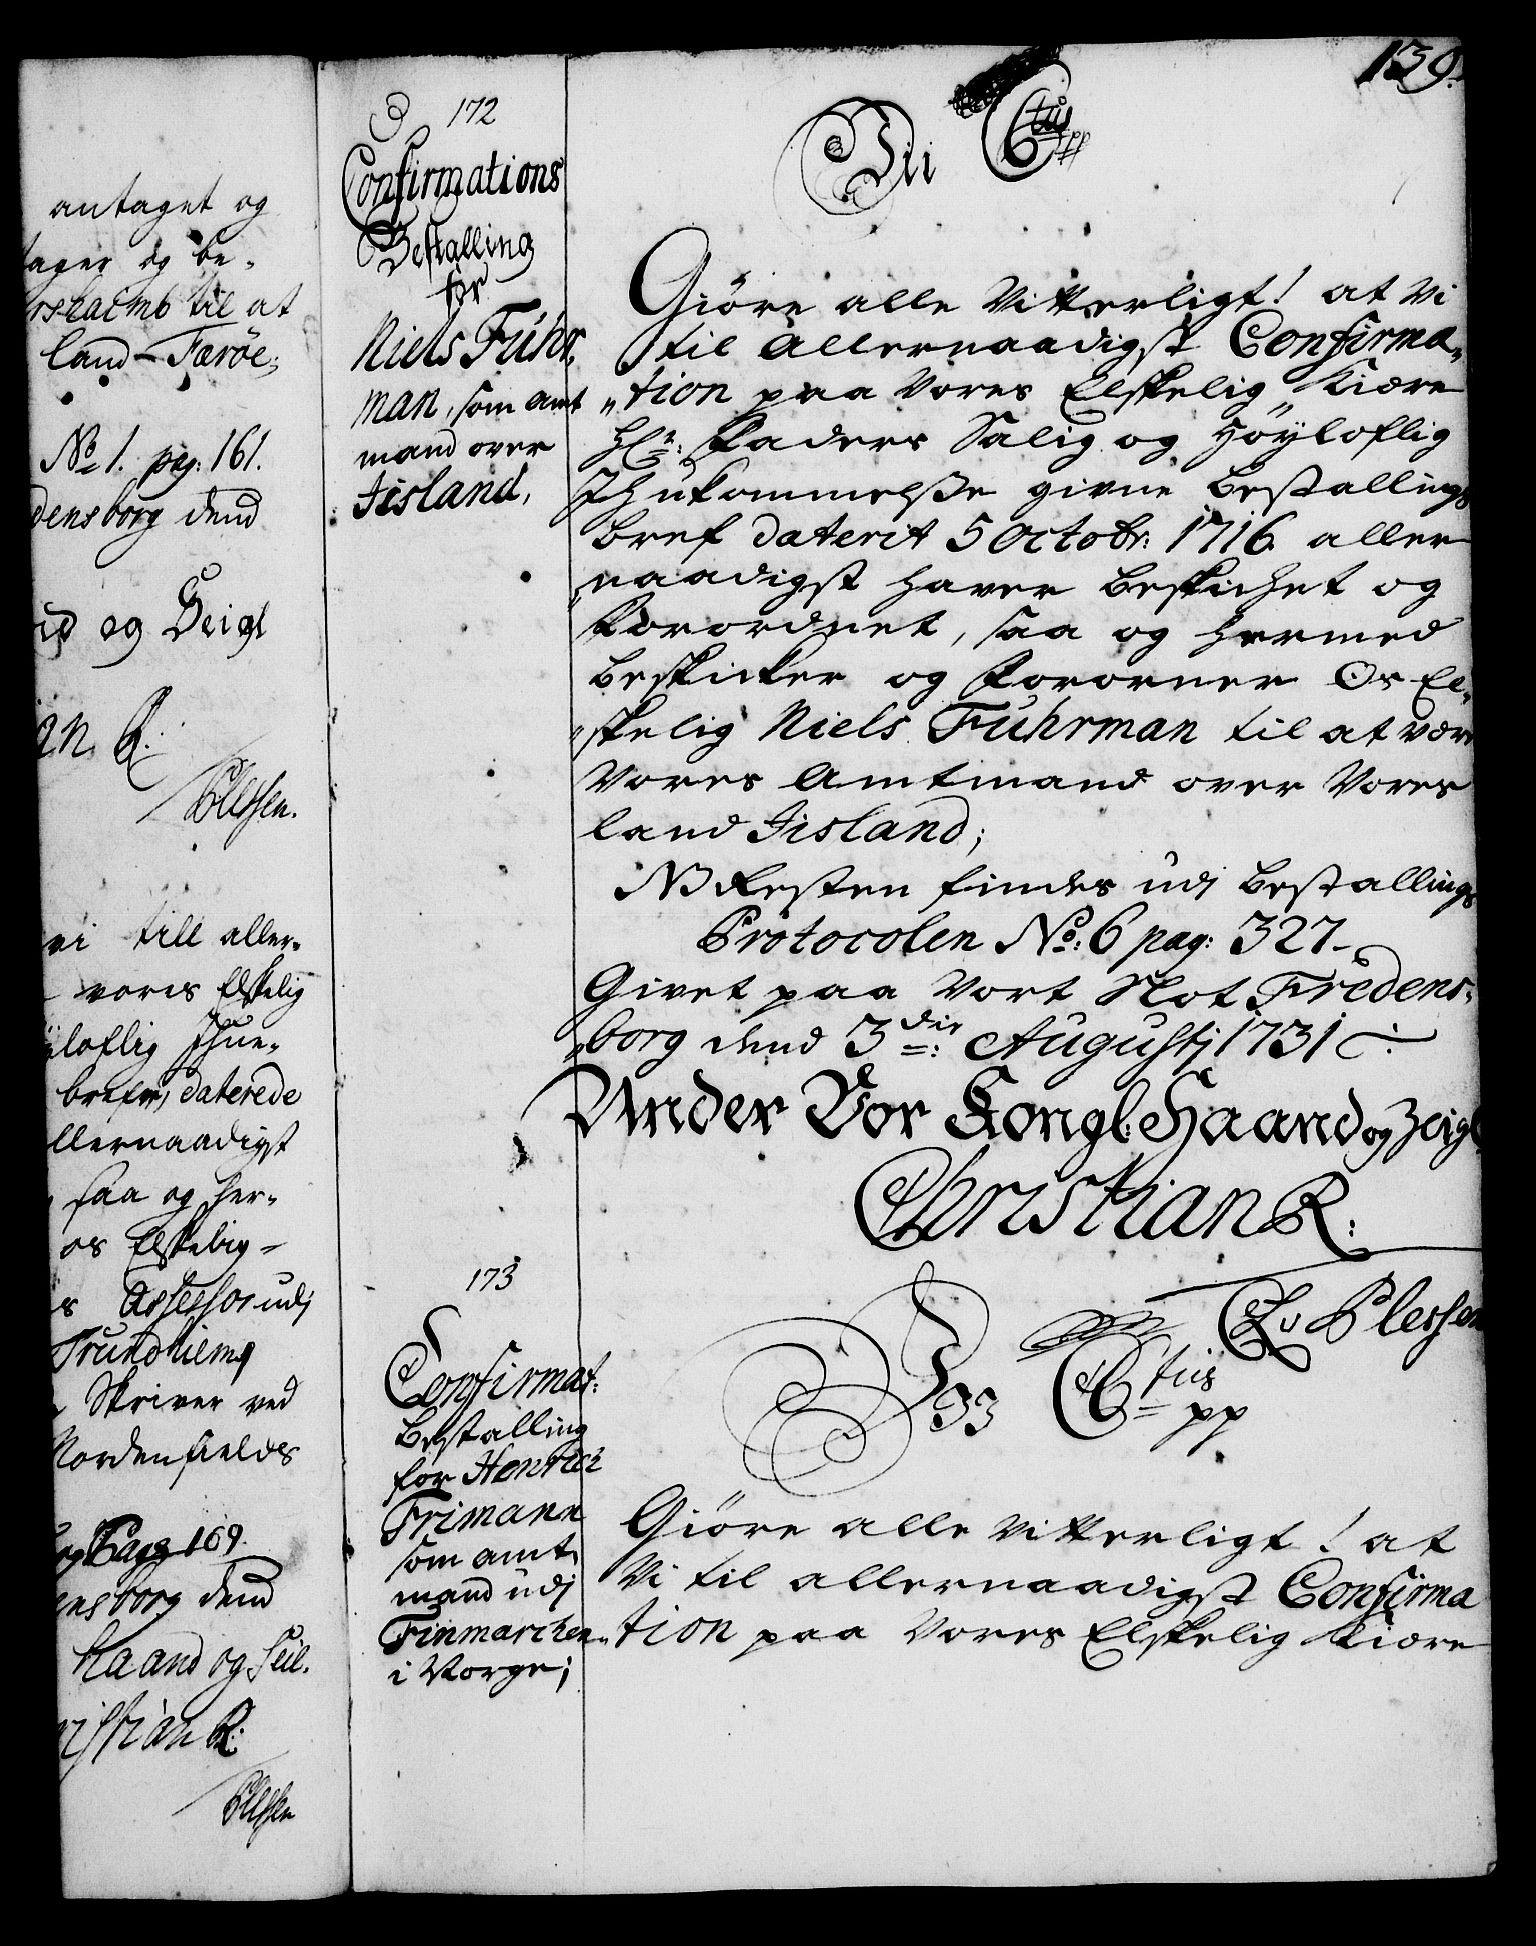 antaget og
ager og be-
rskacmb til at
land - Færöe;
No 1. pag: 161.
densborg dend
og Seigl
an R:
Plessen.
vi till aller-
vores Elskelig
yloflig Jhue-
brefve, daterede
llernaadigst
saa og her-
os Elskelig -
s Assessor udj
Trundhiems
Skriver ved
Nordenfields
og Page 169.
ensborg dend
Haand og Seil.
ristian R:
Plessen
139.
172
Confirmations
Bestalling
for
Niels Fuhr,
man, som amt
mand over
Jisland,
Vii Ctus pp
Giöre alle Vitterligt! at Vi
til allernaadigst Confirma„
„tion paa Vores Elskelig Kiære
Hr: Faders Salig og Höyloflig
Jhukommelße givne Bestallings
bref daterit 5 Octobr: 1716. aller
„naadigst haver beskichet og
Forordnet, saa og hermed
beskicker og Forordner Os El„
„skelig Niels Fuhrman til at være
Vores Amtmand over Vores
land Jisland;
NB Resten findes udj bestallings
Protocolen No: 6 pag: 327-
Givet paa Vort Slot Fredens„
„borg dend 3die: Augustj 1731
Under Vor Kongl: Haand og Zeigl
Christian R:
C A v Plessen
173
Confirmat:
Bestalling
for Henrich
Frimann
som amt
mand udj
Finmarchen
i Norge;
Vii Ctus pp
Giöre alle Vitterligt! at
Vi til allernaadigst Confirma
„tion paa Vores Elskelig Kiære